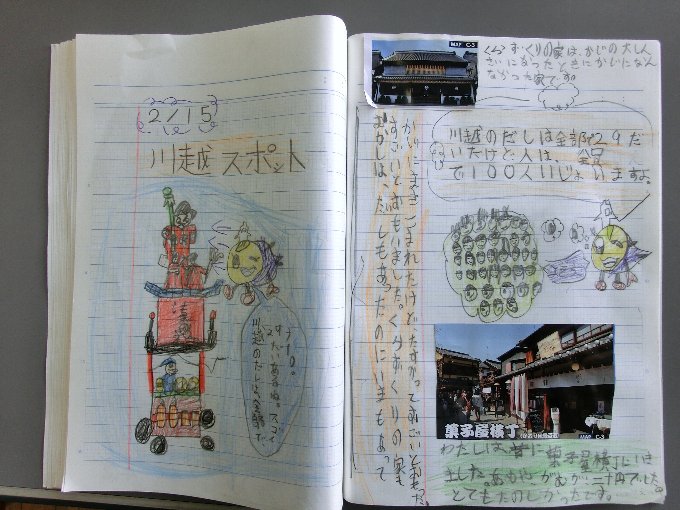 2/15
川越スポット
ナナ。
川越のだしは、全部で
MAP C-3
くらずくりの家は、かじの大しん
さいにあったときにかじになん
なかった家です。
川越のだしは全部で29だ
いだけど人は、
で100人いじょいますよ。
かじにまきこまれたけどたすかってすごいとおもった。
すごいとおもいました。くらずくりの家も
むかしは、だしもあったのにいまもあって
菓子屋横丁
MAP C-3
わたしは昔に菓子屋横丁にいき
ました。あめや、がむが、二十円でした。
とてもたのしかったです。